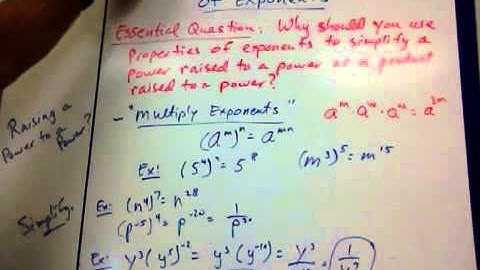 of Exponents
Essential Question: Why should you use
Properties of exponents to simplify a
power raised to a power or a product
raised to a power?
Raising a
Power to a
Power?
- "Multiply Exponents"
(aᵐ)ⁿ = aᵐ·ⁿ
Ex: (5⁴)² = 5⁸ (m³)⁵ = m¹⁵
Simplify.
Ex: (n⁴)⁷ = n²⁸
(p⁻⁵)⁴ = p⁻²⁰ =
Ex: y³(y⁵)⁻² = y³(y⁻¹⁰) = y³